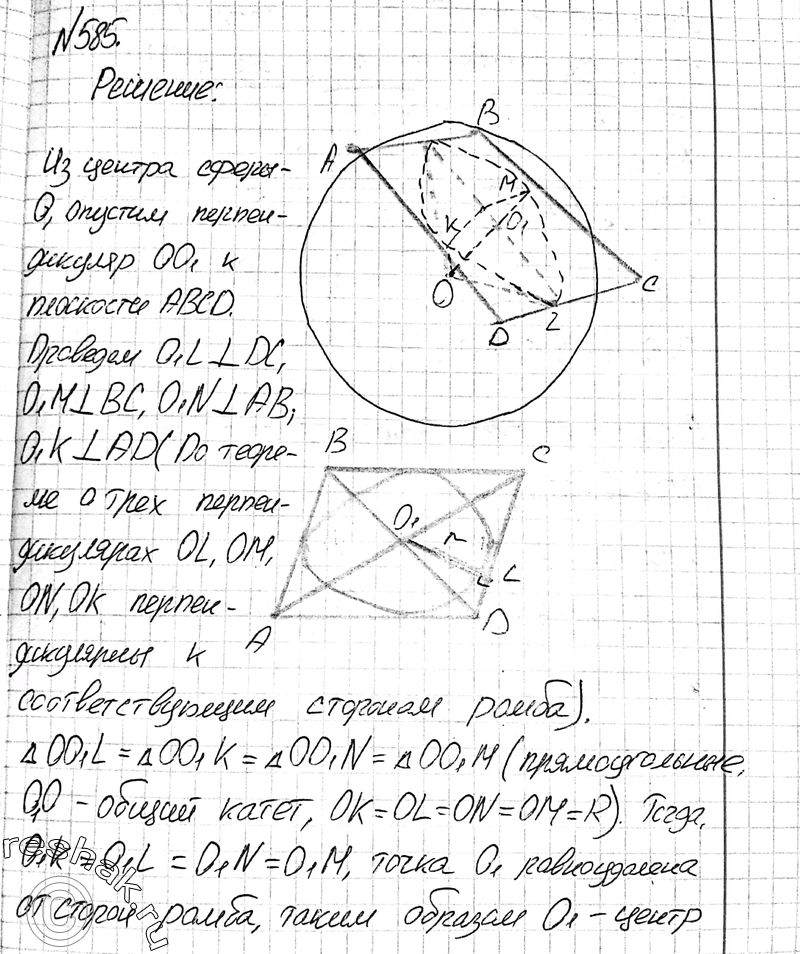 N585.
Решение:
Из центра сферы-
O, опустим перпен-
дикуляр OO₁ к
плоскости ABCD.
Проведем O₁L⊥DC,
O₁M⊥BC, O₁N⊥AB,
O₁K⊥AD (По теоре-
ме о трех перпен-
дикулярах OL, OM,
ON, OK перпен-
дикулярны к
соответствующим сторонам ромба).
△OO₁L = △OO₁K = △OO₁N = △OO₁M (прямоугольные,
O₁O - общий катет, OK=OL=ON=OM=R). Тогда,
O₁K = O₁L = O₁N = O₁M, точка O₁ равноудалена
от сторон ромба, таким образом O₁ - центр
A
B
M
K
O₁
O
C
D
L
B
C
O₁
r
L
A
D
reshak.ru